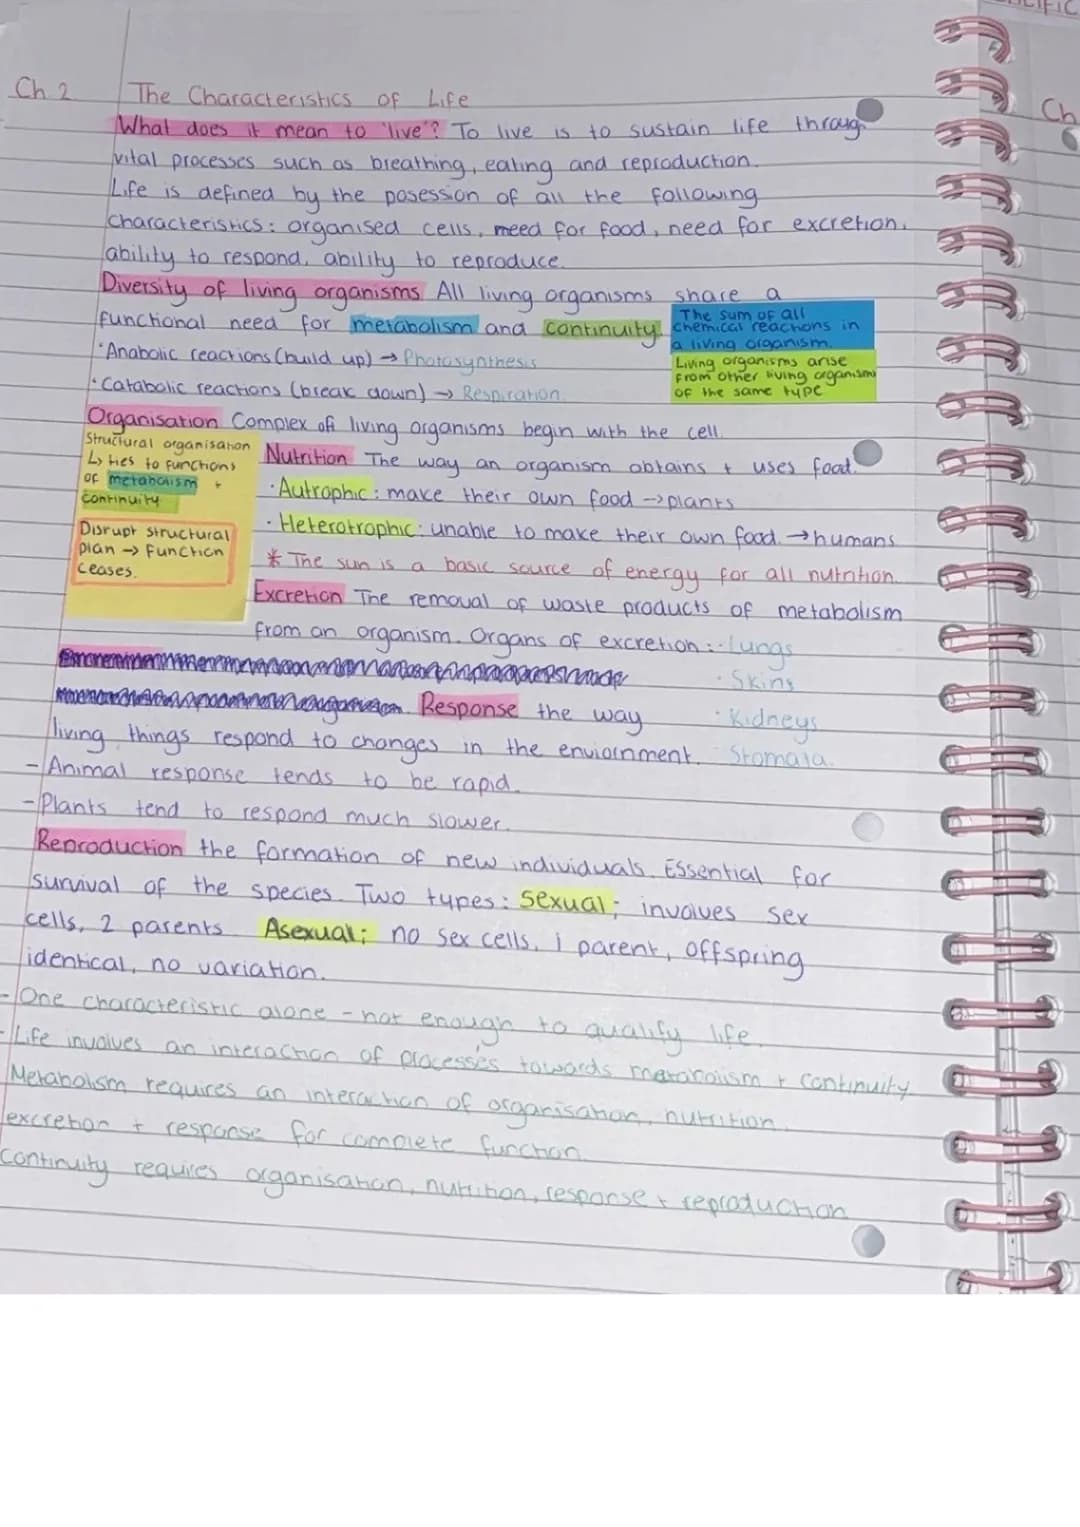 Ch 2 The Characteristics of Life
What does it mean to 'live'? To live is to sustain life throug
vital processes such as breathing, eating and reproduction.
Life is defined by the posession of all the following
characteristics: organised cells, need for food, need for excretion,
ability to respond, ability to reproduce.
Diversity of living organisms All living organisms share a
functional need for metabolism and continuity.
The sum of all
chemical reactions in
a living organism.
Living organisms arise
from other living organisms
of the same type
·Anabolic reactions (build up) → Photosynthesis
·Catabolic reactions (break down) → Respiration
Organisation Complex of living organisms begin with the cell.
Structural organisation
↳ ties to functions
of metabolism +
continuity
Disrupt structural
plan → Function
ceases.
Nutrition The way an organism obtains + uses food.
·Autrophic: make their own food → plants
·Heterotrophic: unable to make their own food. → humans
* The sun is a basic source of energy for all nutrition.
Excretion The removal of waste products of metabolism
from an organism. Organs of excretion: ·Lungs
·Skins
·Kidneys
·Stomata.
Response the way
living things respond to changes in the enviornment.
- Animal response tends to be rapid.
- Plants tend to respond much slower.
Reproduction the formation of new individuals. Essential for
survival of the species. Two types: Sexual; involves sex
cells, 2 parents Asexual; no sex cells, 1 parent, offspring
identical, no variation.
- One characteristic alone - not enough to qualify life.
- Life involves an interaction of processes towards metabolism + continuity
Metabolism requires an interaction of organisation, nutrition,
excretion + response for complete function.
Continuity requires organisation, nutrition, response + reproduction
Ch